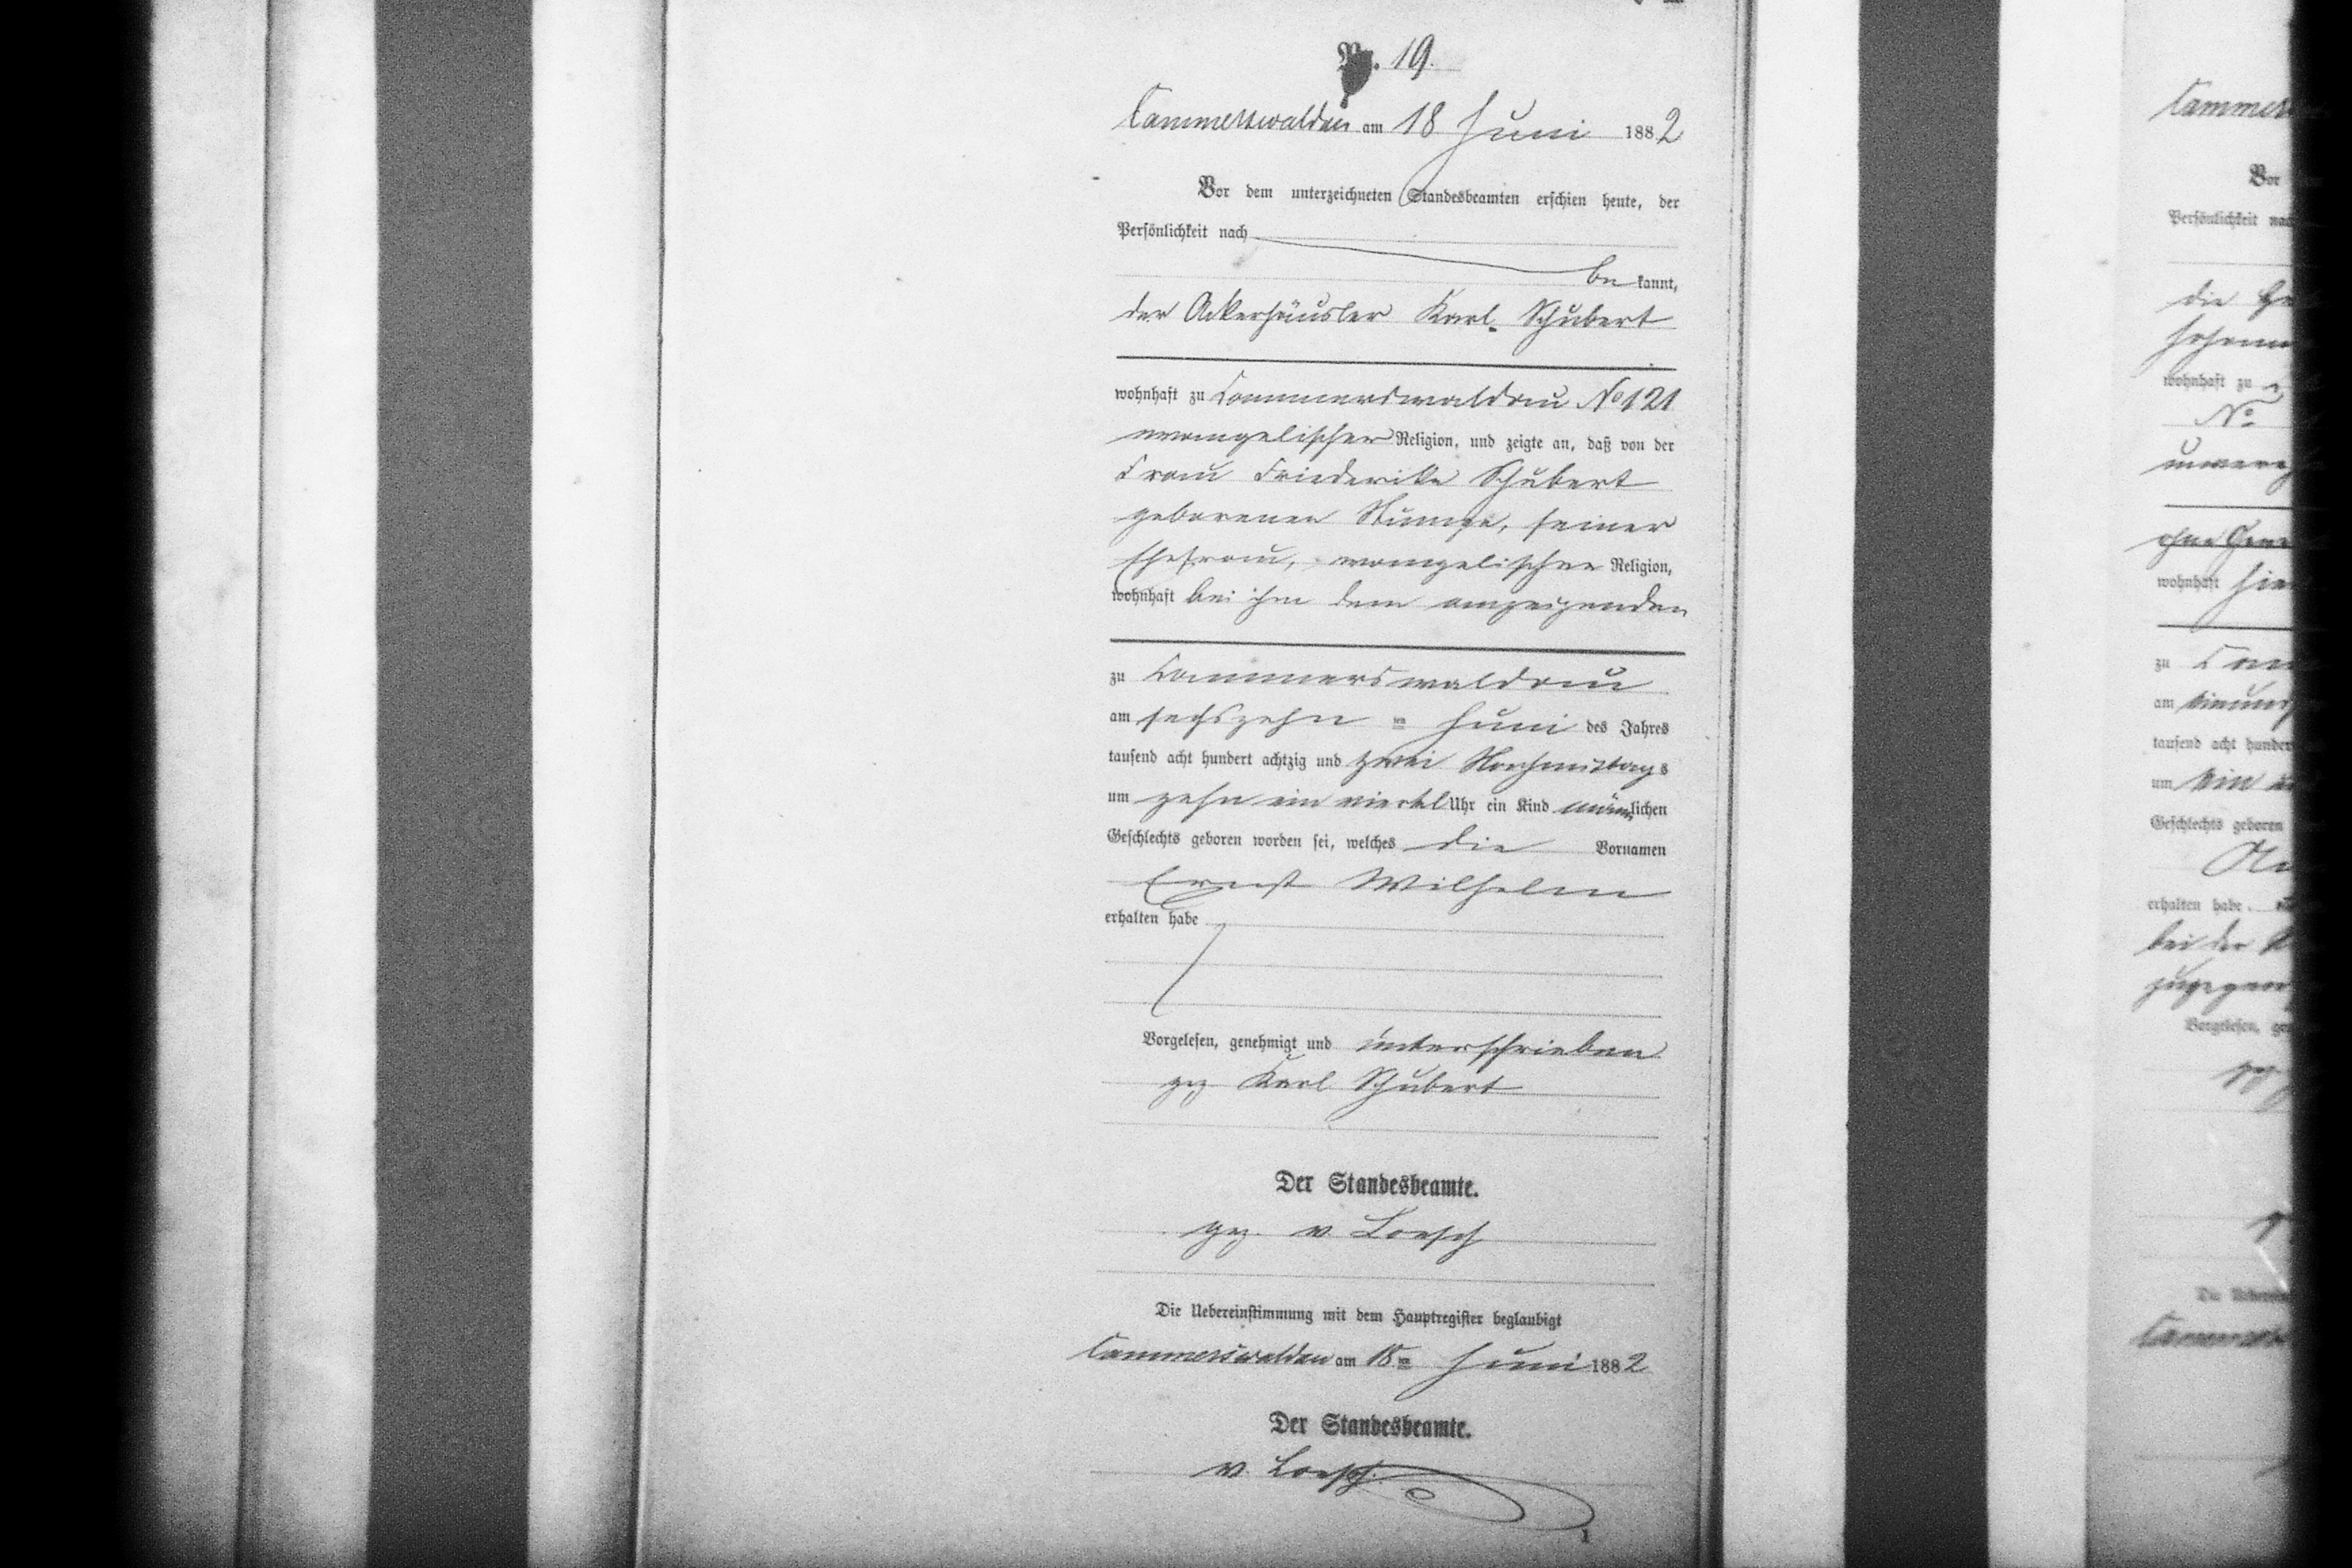 Nr. 19.
Cammerswaldau am 18 Juni 1882
Vor dem unterzeichneten Standesbeamten erschien heute, der
Persönlichkeit nach
be kannt,
der Ackerhäusler Karl Schubert
wohnhaft zu Cammerswaldau No 121
evangelischer Religion, und zeigte an, daß von der
Frau Friederike Schubert
geborenen Stumpe, seiner
Ehefrau, evangelischer Religion,
wohnhaft bei ihm dem anzeigenden
zu Cammerswaldau
am sechszehn ten Juni des Jahres
tausend acht hundert achtzig und zwei Nachmittags
um zehn ein viertel Uhr ein Kind männlichen
Geschlechts geboren worden sei, welches die Vornamen
Ernst Wilhelm
erhalten habe
Vorgelesen, genehmigt und unterschrieben
gez Karl Schubert
Der Standesbeamte.
gez. v. Loesch
Die Uebereinstimmung mit dem Hauptregister beglaubigt
Cammerswaldau am 18ten Juni 1882
Der Standesbeamte.
v. Loesch.
Vor
Persönlichkeit
die
wohnhaft zu
No
wohnhaft
zu
am
tausend acht
um ein
Geschlechts geboren
erhalten habe
bei der
Vorgelesen,
Die